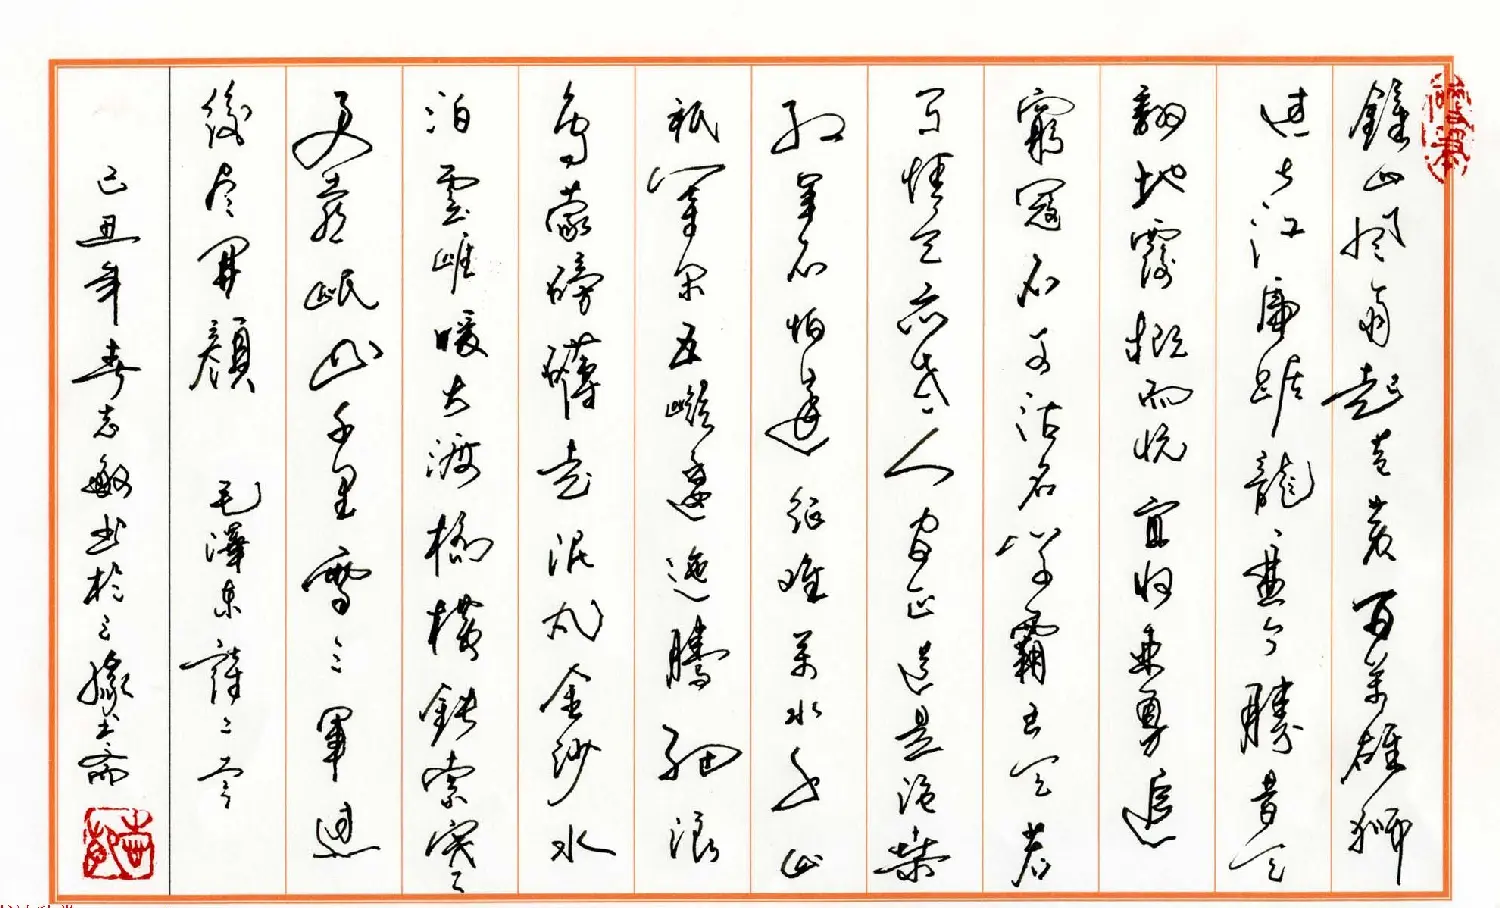 鍾山風雨起苍黄百萬雄師
過大江虎踞龍盘今勝昔天
翻地覆慨而慷宜将剩勇追
窮寇不可沽名學霸王天若
有情天亦老人间正道是滄桑
紅軍不怕遠征難萬水千山
祇等闲五嶺逶迤騰細浪
烏蒙磅礴走泥丸金沙水
泊雲崖暖大渡橋橫鐵索寒
更喜岷山千里雪三軍過
後尽開顏 毛澤東詩二首
己丑年春志敏书於三緣书斋